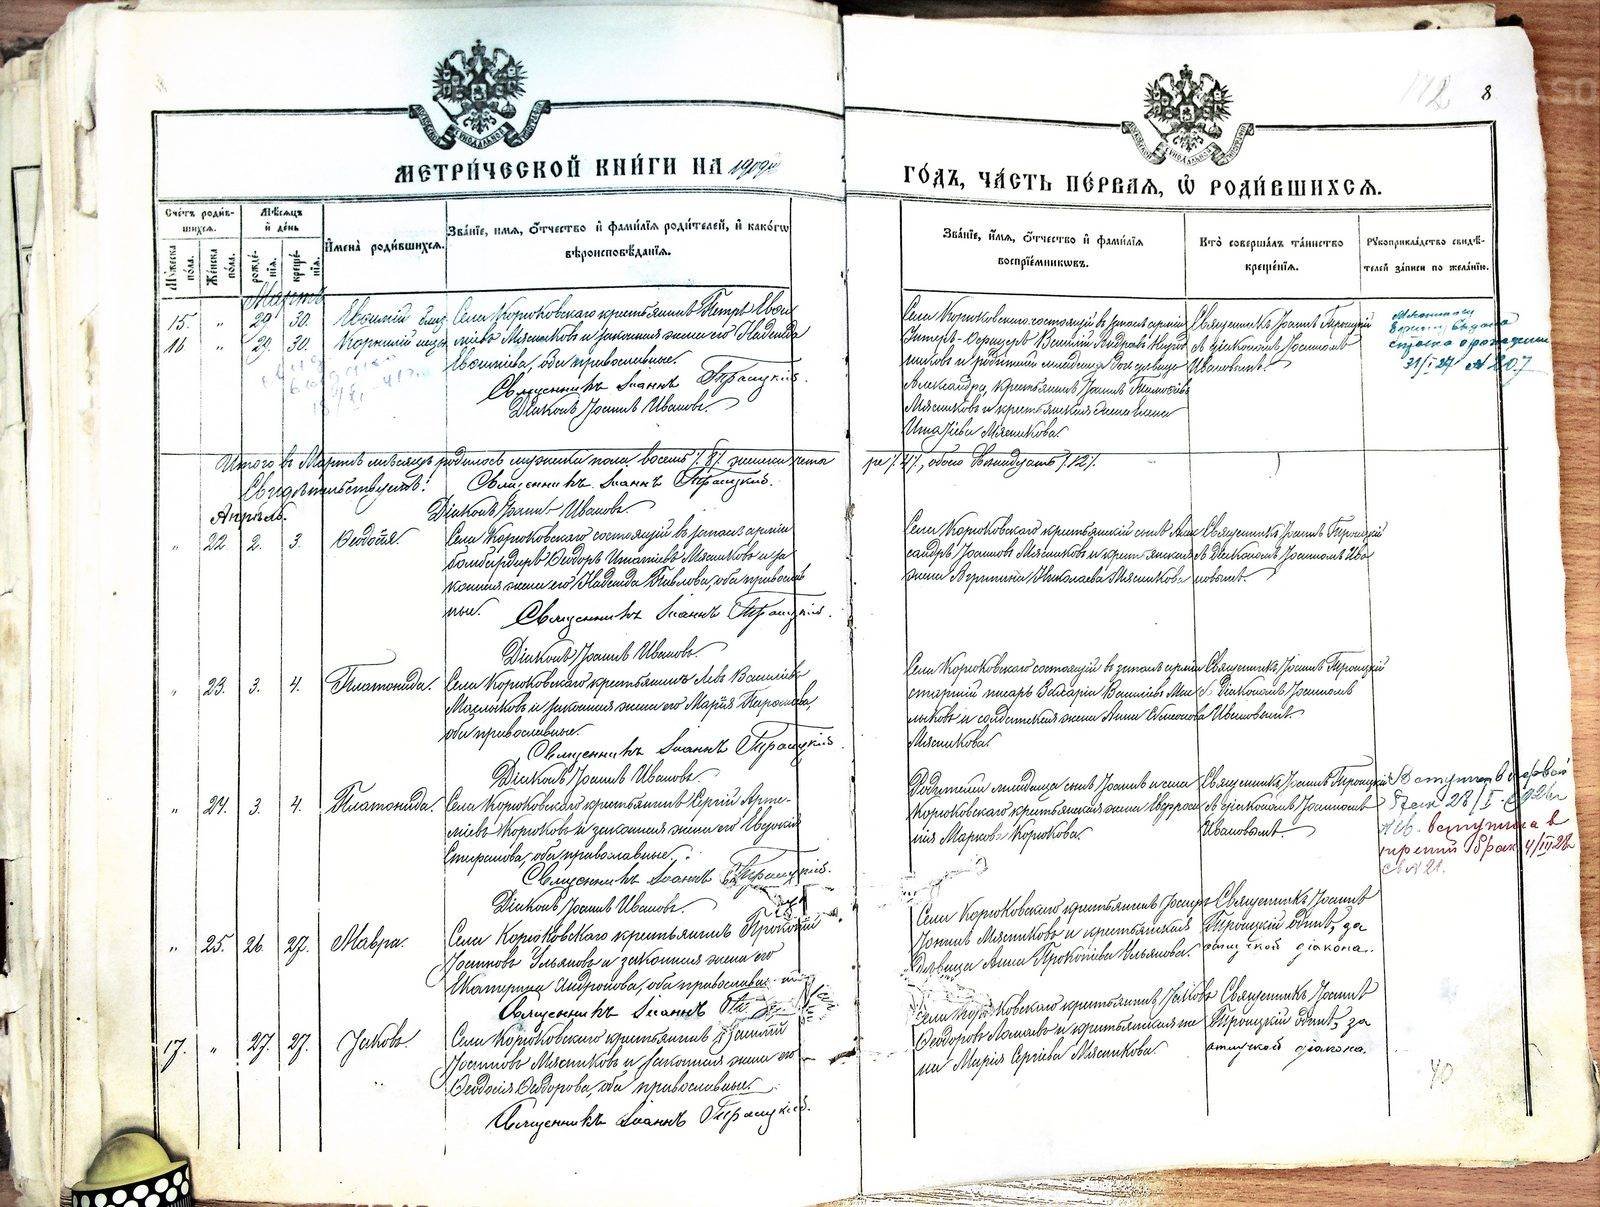 МЕТРИ́ЧЕСКОЙ КНИ́ГИ НА 1909й
ГО́ДЪ, ЧА́СТЬ ПЕ́РВАЯ, Ѡ҆ РОДИ́ВШИХСЯ.
8
Сче́тъ роди́в-
шихся.
Му́жеска по́ла.
Же́нска по́ла.
Мѣ́сяцъ
и҆ де́нь
рожде́нїя.
креще́нїя.
И҆мена̀ роди́вшихся.
Зва́нїе, и҆́мя, ѻ҆́тчество и҆ фами́лїя роди́телей, и҆ како́гѡ
вѣроисповѣ́данїя.
Зва́нїе, и҆́мя, ѻ҆́тчество и҆ фами́лїя
воспрїе́мникѡвъ.
Кто̀ соверша́лъ та́инство
креще́нїя.
Рꙋкоприкла́дство свидѣ́-
телей за́писи по жела́нїю.
Мартъ
15. " 29 30. Евѳимій
16 " 29. 30. Корнилій
Села Корюковскаго крестьянинъ Петръ Евѳи
міевъ Мясниковъ и законная жена его Надежда
оба православные.
Священникъ Іоаннъ Троицкій.
Діаконъ Іоаннъ Ивановъ.
Села Корюковскаго состоящій въ запасѣ арміи
Унтеръ-Офицеръ Василій
Александра, крестьянинъ Іоаннъ Тимоѳеевъ
Мясниковъ и крестьянская жена
Игнатіева Мясникова.
Священникъ Іоаннъ Троицкій
съ діакономъ Іоанномъ
Ивановымъ.
31/I 27 № 207
Итого въ Мартѣ мѣсяцѣ родилось мужеска пола восемь /8/ женска четы
ре /4/, обоего двѣнадцать /12/.
Свидѣтельствуемъ: Священникъ Іоаннъ Троицкій.
Діаконъ Іоаннъ Ивановъ
Апрѣль.
" 22 2. 3. Ѳеодосія.
Села Корюковскаго состоящій въ запасѣ арміи
бомбардиръ Ѳеодоръ Игнатіевъ Мясниковъ и за
конная жена его Надежда Павлова, оба православ
ные. Священникъ Іоаннъ Троицкій.
Діаконъ Іоаннъ Ивановъ.
Села Корюковскаго крестьянскій сынъ Алек
сандръ Іоанновъ Мясниковъ и крестьянская
жена Николаева Мясникова.
Священникъ Іоаннъ Троицкій
съ діакономъ Іоанномъ Ива
новымъ.
" 23. 3. 4. Платонида.
Села Корюковскаго крестьянинъ Левъ Василіевъ
и законная жена его Марія
оба православные.
Священникъ Іоаннъ Троицкій
Діаконъ Іоаннъ Ивановъ.
Села Корюковскаго состоящій въ запасѣ арміи
старшій писарь Захарія Василіевъ
и солдатская жена Анна
Мясникова.
Священникъ Іоаннъ Троицкій
съ діакономъ Іоанномъ
Ивановымъ.
" 24. 3. 4. Платонида.
Села Корюковскаго крестьянинъ Сергій Арте-
міевъ Корюковъ и законная жена его Евдокія
Спиридонова, оба православные.
Священникъ Іоаннъ Троицкій.
Діаконъ Іоаннъ Ивановъ.
Родителей младенца сынъ Іоаннъ и села
Корюковскаго крестьянская жена Евфроси
нія Маркова Корюкова.
Священникъ Іоаннъ Троицкій
съ діакономъ Іоанномъ
Ивановымъ.
вступила в
третий брак 4/III 28
" 25. 26. 27. Мавра.
Села Корюковскаго крестьянинъ Прокопій
Іоанновъ Ульяновъ и законная жена его
Екатерина Андронова, оба православные
Священникъ Іоаннъ
Села Корюковскаго крестьянинъ
Мясниковъ и крестьянская
дѣвица Анна Прокопіева Ульянова.
Священникъ Іоаннъ
Троицкій одинъ, за
отлучкой діакона.
17. " 27. 27. Іаковъ.
Села Корюковскаго крестьянинъ
Іоанновъ Мясниковъ и законная жена его
Ѳеодосія Ѳеодорова, оба православные.
Священникъ Іоаннъ Троицкій.
Села Корюковскаго крестьянинъ Іаковъ
Ѳеодоровъ и крестьянская же
на Марія Сергіева Мясникова.
Священникъ Іоаннъ
Троицкій одинъ, за
отлучкой діакона.
40